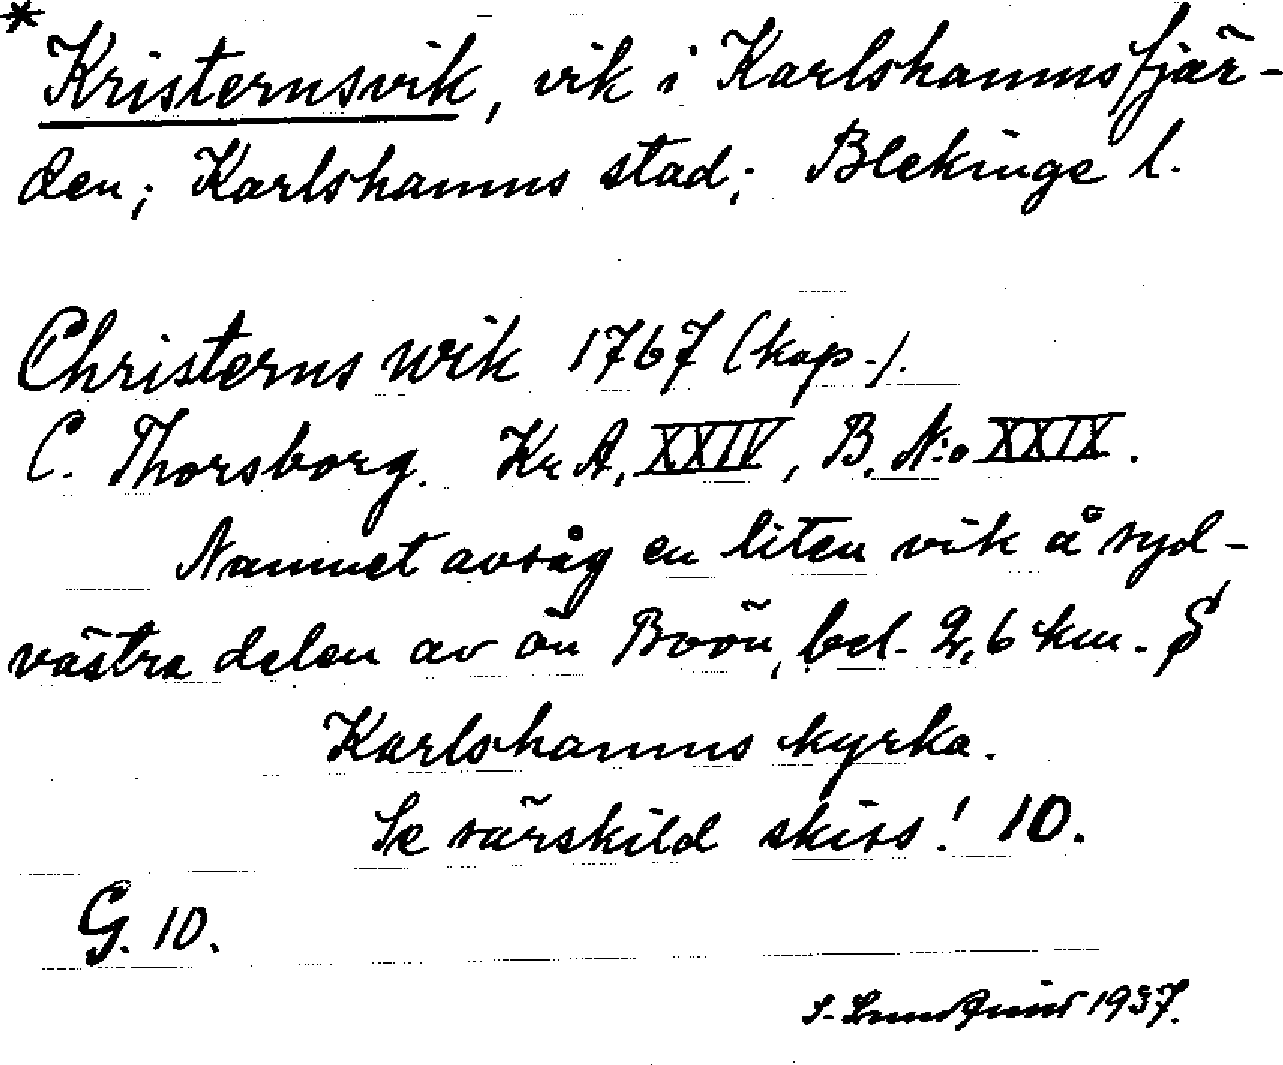 * Kristernsvik, vik i Karlshamnsfjär-
den; Karlshamns stad; Blekinge l.
Christerns Wik 1767 (kop.).
C. Thorsborg. Kr A, XXIV, B. N:o XXIX.
Namnet avsåg en liten vik å syd-
västra delen av ön Boön, bel. 2,6 km. S
Karlshamns kyrka.
Se särskild skiss! 10.
G. 10.
S. 1937.